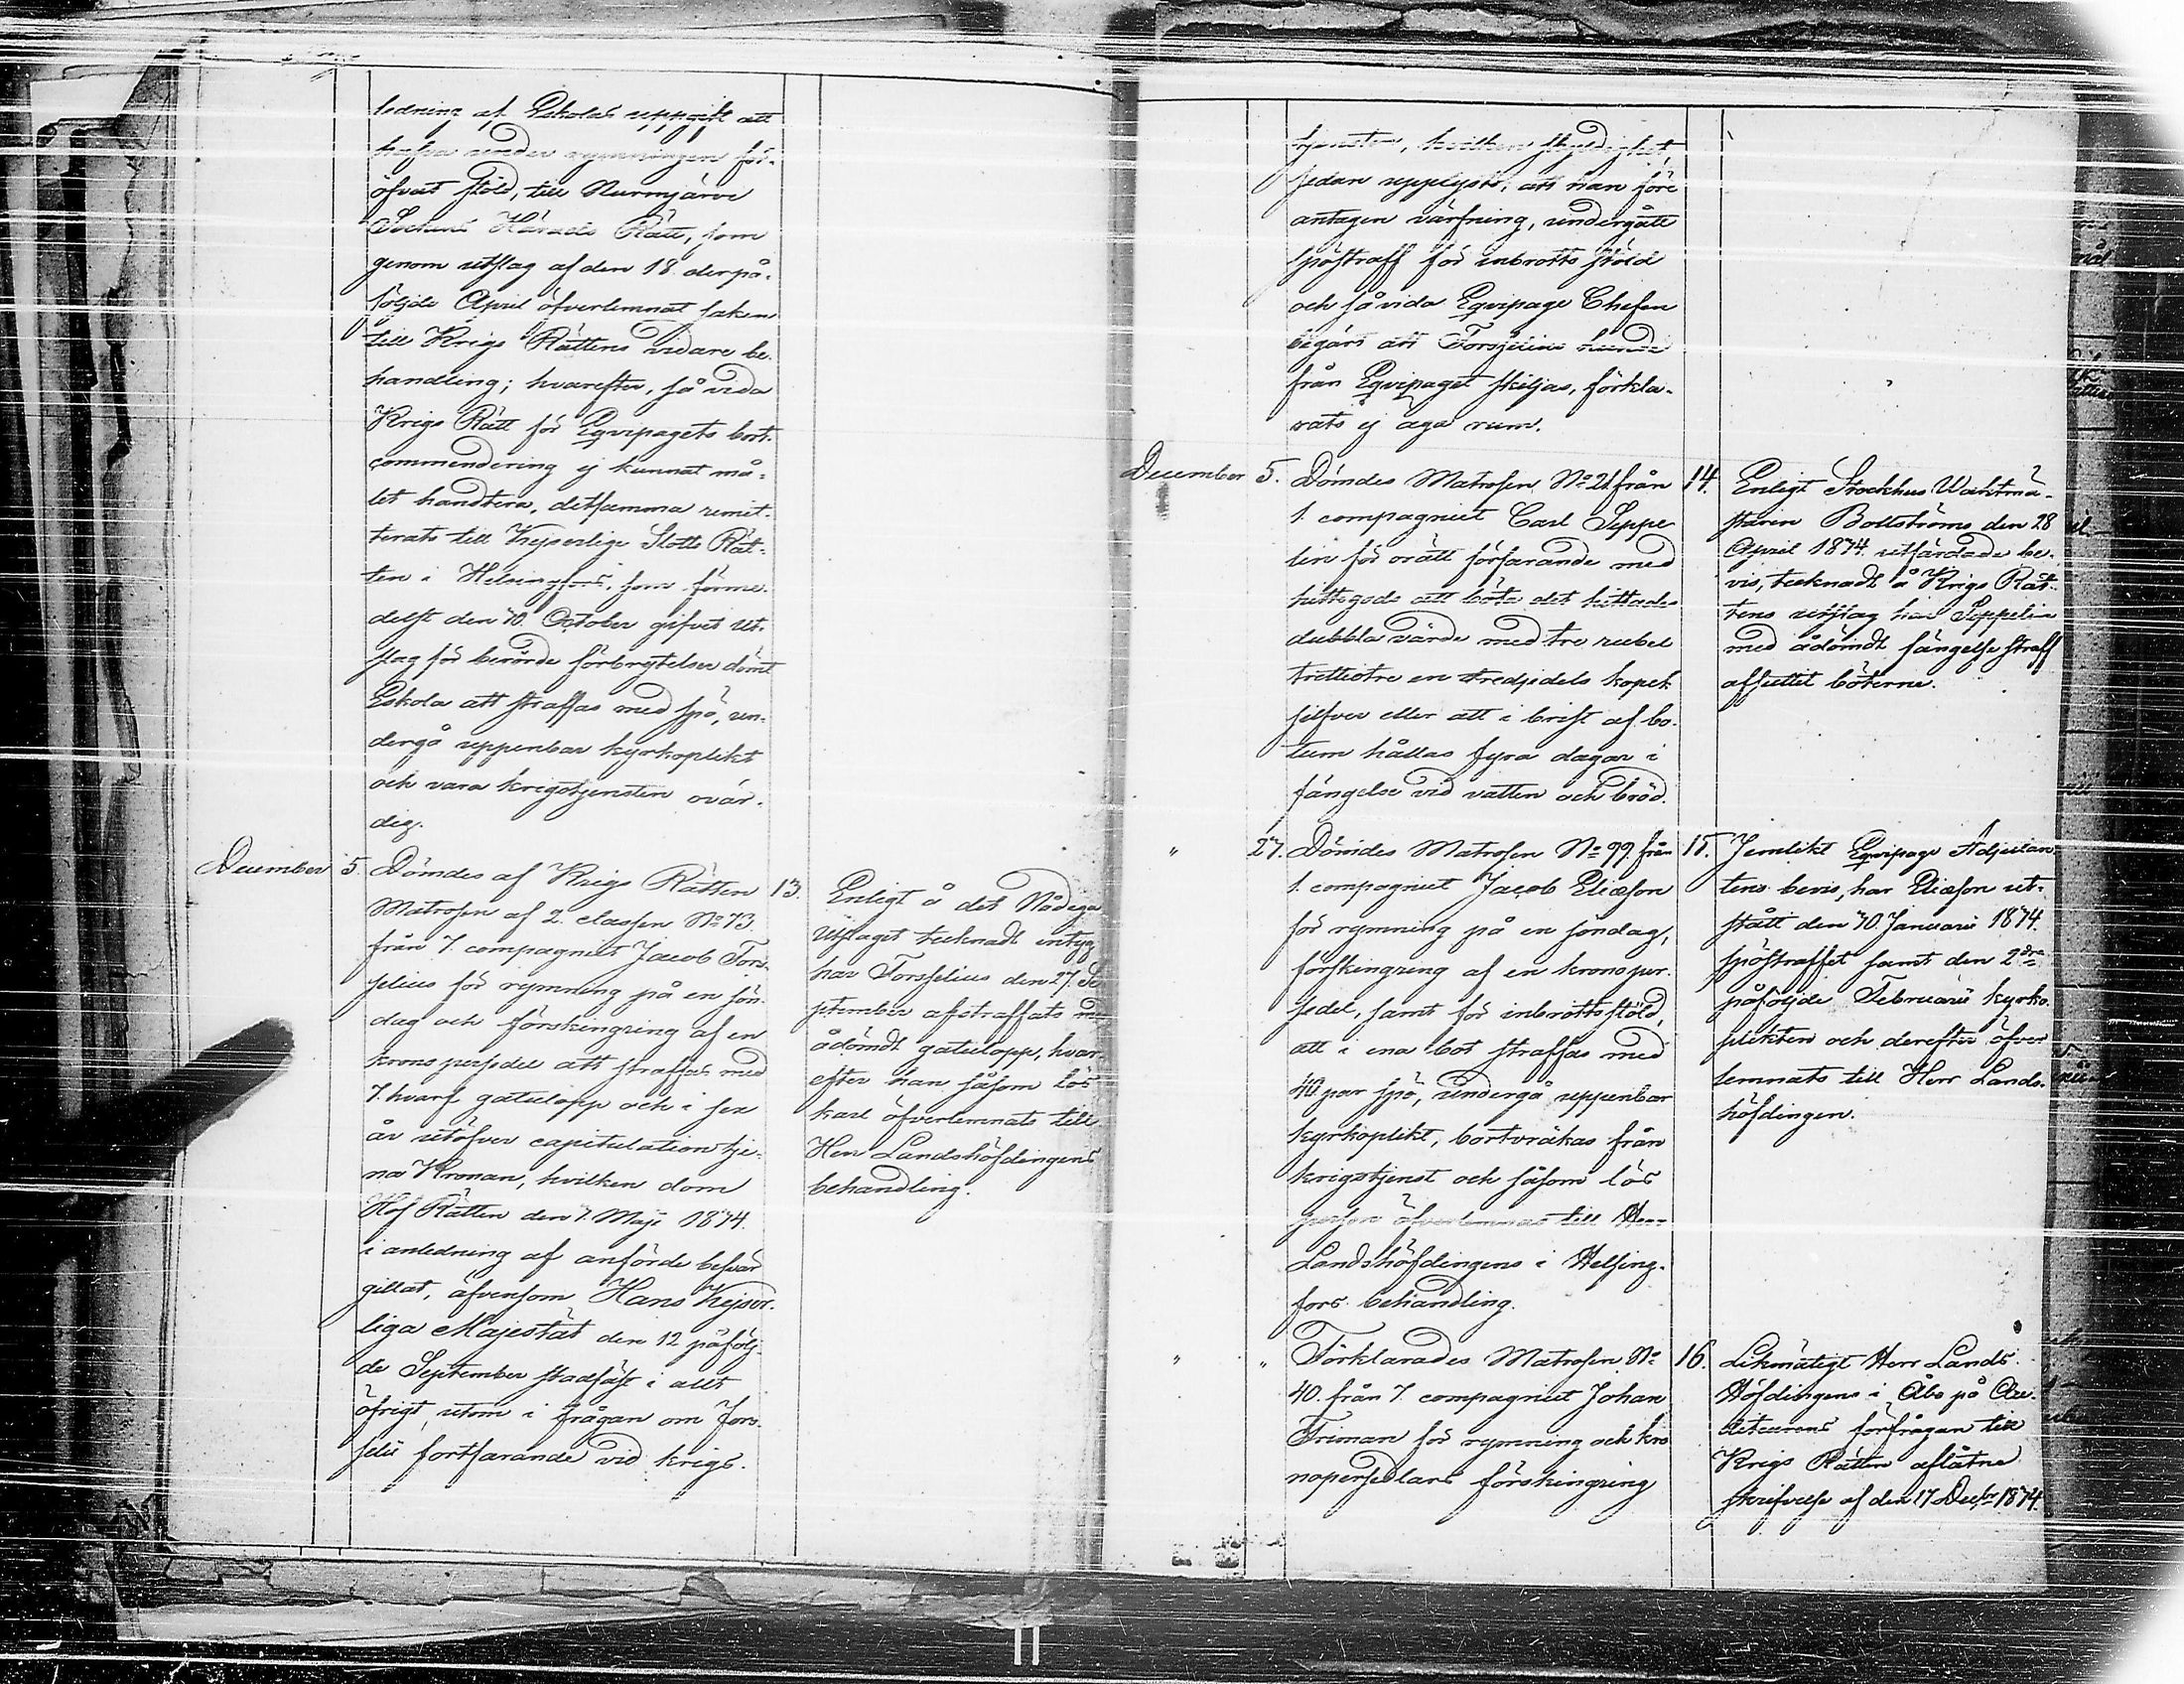 ledning af Eskolas uppgift att
hafva under rymningen för-
öfvat stöld, till Nurmijärvi
Sockens Härads Rätt, som
genom utslag af den 18. derpå-
följde April öfverlemnat saken
till Krigs Rättens vidare be-
handling; hvarefter, så vida
Krigs Rätt för Eqvipagets bort-
commendering ej kunnat må-
let handtera, detsamma remit-
terats till Kejserlige Slotts Rät-
ten i Helsingfors, som förme-
delst den 10. October gifvet ut-
slag för berörde förbrytelser dömt
Eskola att straffas med spö, un-
dergå uppenbar kyrkoplikt
och vara krigstjensten ovär-
dig.
December 5. Dömdes af Krigs Rätten 13.
Matrosen af 2. classen No 73.
från 7. compagniet Jacob Fors-
selius för rymning på en sön-
dag och förskingring af en
krons persedel att straffas med
7. hvarf gatulopp och i sex
år utöfver capitulation tje-
na Kronan, hvilken dom
Hof Rätten den 7. Maji 1874.
i anledning af anförde besvär
gillat, äfvensom Hans Kejser-
liga Majestät den 12 påfölj-
de September stadfäst i allt
öfrigt, utom i frågan om Fors-
selii fortfarande vid krigs-
Enligt å det Nådiga
Utslaget tecknadt intyg
har Forsselius den 27. Se-
ptember afstraffats med
ådömdt gatulopp, hvar-
efter han såsom lös
karl öfverlemnats till
Herr Landshöfdingens
behandling.
tjensten, hvilken skyldighet,
sedan upplysts, att han före
antagen värfning, undergått
spöstraff för inbrotts stöld
och så vida Eqvipage Chefen
begärt att Forsselius kunde
från Eqvipaget skiljas, förkla-
rats ej äga rum.
December 5. Dömdes Matrosen No 21 från 14.
1. compagniet Carl Seppe
lin för orätt förfarande med
hittegods att böta det hittades
dubbla värde med tre rubel
trettiotre en tredjedels kopek
silfver eller att i brist af bo-
tum hållas fyra dagar i
fängelse vid vatten och bröd.
Enligt Stockhus Waktmä-
staren Bollströms den 28
April 1874. utfärdade be-
vis, tecknadt å Krigs Rät-
tens utslag har Seppelin
med ådömdt fängelse straff
afsuttit böterne.
" 27. Dömdes Matrosen No 99. från 15.
1. compagniet Jacob Eliæson
för rymning på en söndag,
förskingring af en krons per-
sedel, samt för inbrottsstöld,
att i ena bot straffas med
40 par spö, undergå uppenbar
kyrkoplikt, bortvräkas från
krigstjenst och såsom lös
person öfverlemnas till Herr
Landshöfdingens i Helsing-
fors behandling.
Jemlikt Eqvipage Adjutan-
tens bevis, har Eliæson ut-
stått den 70. Januarii 1874.
spöstraffet samt den 2dra
påföljde Februarii kyrko-
plikten och derefter öfver
lemnats till Herr Lands-
höfdingen.
" " Förklarades Matrosen No 16.
40. från 7. compagniet Johan
Friman för rymning och kro
nopersedlars förskingring
Likmätigt Herr Lands-
Höfdingens i Åbo på Au-
diteurens förfrågan till
Krigs Rätten aflåtne
skrifvelse af den 17 Decbr 1874.